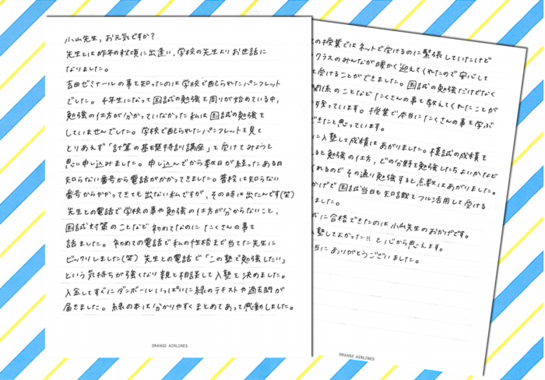 小山先生、お元気ですか？
先生とは昨年の秋頃に出逢い、学校の先生よりお世話に
なりました。
吉田ゼミナールの事を知ったのは学校で配られたパンフレット
でした。4年生になって国試の勉強を周りが始めている中、
勉強の仕方が分かっていなかった私は国試の勉強を
していませんでした。学校で配られたパンフレットを見て
とりあえず「計算の基礎特訓講座」を受けてみようと
思い申し込みました。申し込んでから数日が経ったある日
知らない番号から電話がかかってきました。普段は知らない
番号からかかってきても出ない私ですが、その時は出たんです(笑)
先生との電話で学校の事や勉強の仕方が分からないこと、
国試対策のことなど初めてなのにたくさんの事を
話ました。初めての電話で私の性格まで当てた先生に
ビックリしました(笑) 先生との電話で「この塾で勉強したい」
という気持ちが強くなり親と相談して入塾を決めました。
入金してすぐにダンボールいっぱいに緑のテキストや過去問が
届きました。緑の本は分かりやすくまとめてあって感動しました。
ORANGE AIRLINES
の授業ではネットで受けるのに緊張していたけど
クラスのみんなが暖かく迎えてくれたので安心して
受けることができました。国試の勉強だけでなく
関係のことなどたくさんの事を教えてくれたことが
っています。授業で本当にたくさんの事を学ぶ
できたと思っています。
に入塾して成績はあがりました。模試の成績を
ると勉強の仕方、どの分野を勉強したらよいかなど
れるのでその通り勉強すると点数はあがりました。
かげで国試当日も知識をフル活用して受ける
ました。
に合格できたのは小山先生のおかげです。
塾してよかった!!と心から思えます。
当にありがとうございました。
ORANGE AIRLINES